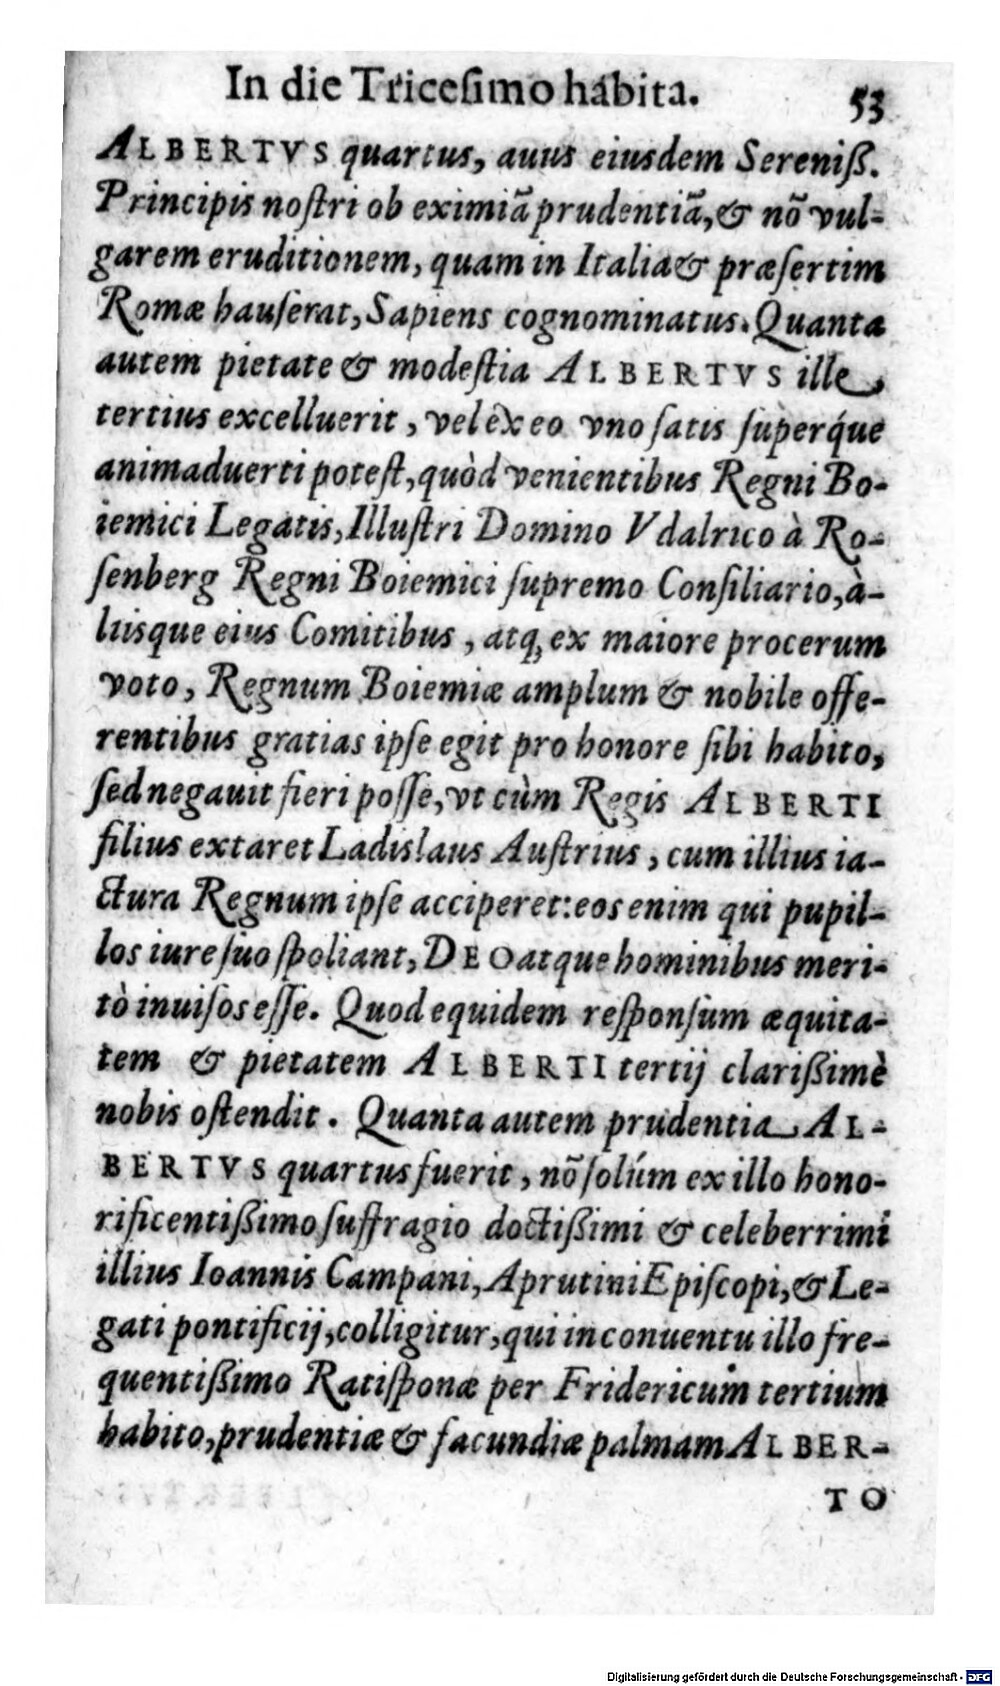 In die Triceſimo habita. 53
ALBERTVS quartus, auus eiusdem Sereniß.
Principis noſtri ob eximiã prudentiã, & nõ vul-
garem eruditionem, quam in Italia & præſertim
Romæ hauſerat, Sapiens cognominatus. Quanta
autem pietate & modeſtia ALBERTVS ille,
tertius excelluerit, vel ex eo vno ſatis ſupérque
animaduerti poteſt, quòd venientibus Regni Bo-
iemici Legatis, Illuſtri Domino Vdalrico à Ro-
ſenberg Regni Boiemici ſupremo Conſiliario, à-
liisque eius Comitibus, atq; ex maiore procerum
voto, Regnum Boiemiæ amplum & nobile offe-
rentibus gratias ipſe egit pro honore ſibi habito,
ſed negauit fieri poſſe, vt cùm Regis ALBERTI
filius extaret Ladislaus Auſtrius, cum illius ia-
ctura Regnum ipſe acciperet: eos enim qui pupil-
los iure ſuo ſpoliant, DEO atque hominibus meri-
tò inuiſos eſſe. Quod equidem reſponſum æquita-
tem & pietatem ALBERTI tertij clarißimè
nobis oſtendit. Quanta autem prudentia AL-
BERTVS quartus fuerit, nõ ſolúm ex illo hono-
rificentißimo ſuffragio doctißimi & celeberrimi
illius Ioannis Campani, Aprutini Epiſcopi, & Le-
gati pontificij, colligitur, qui in conuentu illo fre-
quentißimo Ratiſponæ per Fridericum tertium
habito, prudentiæ & facundiæ palmam ALBER-
TO
Digitalisierung gefördert durch die Deutsche Forschungsgemeinschaft - DFG